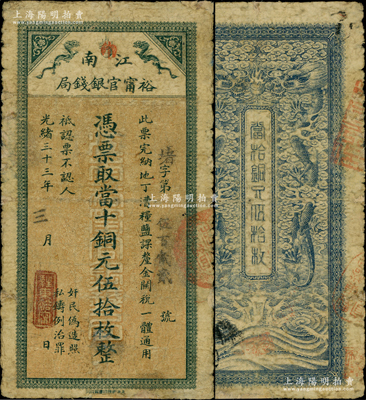 上海陽明拍賣
江南
裕甯官銀錢局
此票完納地丁漕糧鹽課釐金關稅一體通用
字第 號
憑票取當十銅元伍拾枚整
祇認票不認人
光緒三十三年三月 日
奸民偽造照
私鑄例治罪
當拾銅元伍拾枚
上海陽明拍賣